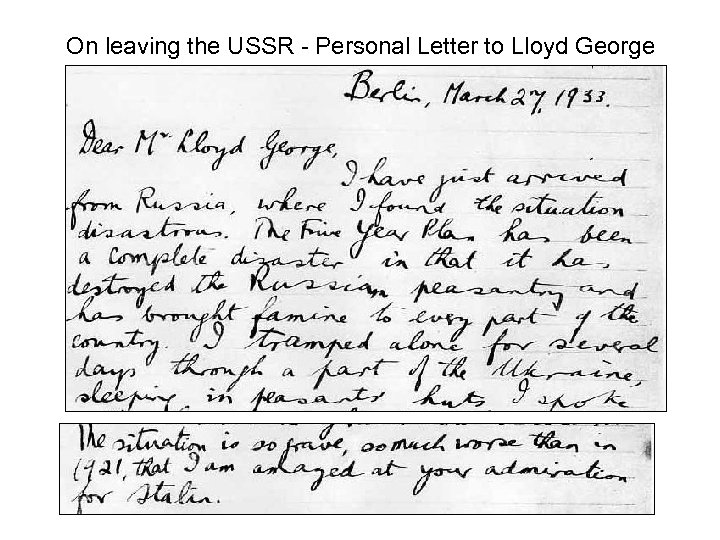 On leaving the USSR - Personal Letter to Lloyd George
Berlin, March 27, 1933.
Dear Mr Lloyd George,
I have just arrived
from Russia, where I found the situation
disastrous. The Five Year Plan has been
a complete disaster in that it has
destroyed the Russian peasantry and
has brought famine to every part of the
country. I tramped alone for several
days through a part of the Ukraine,
sleeping in peasants' huts. I spoke
The situation is so grave, so much worse than in
1921, that I am amazed at your admiration
for Stalin.